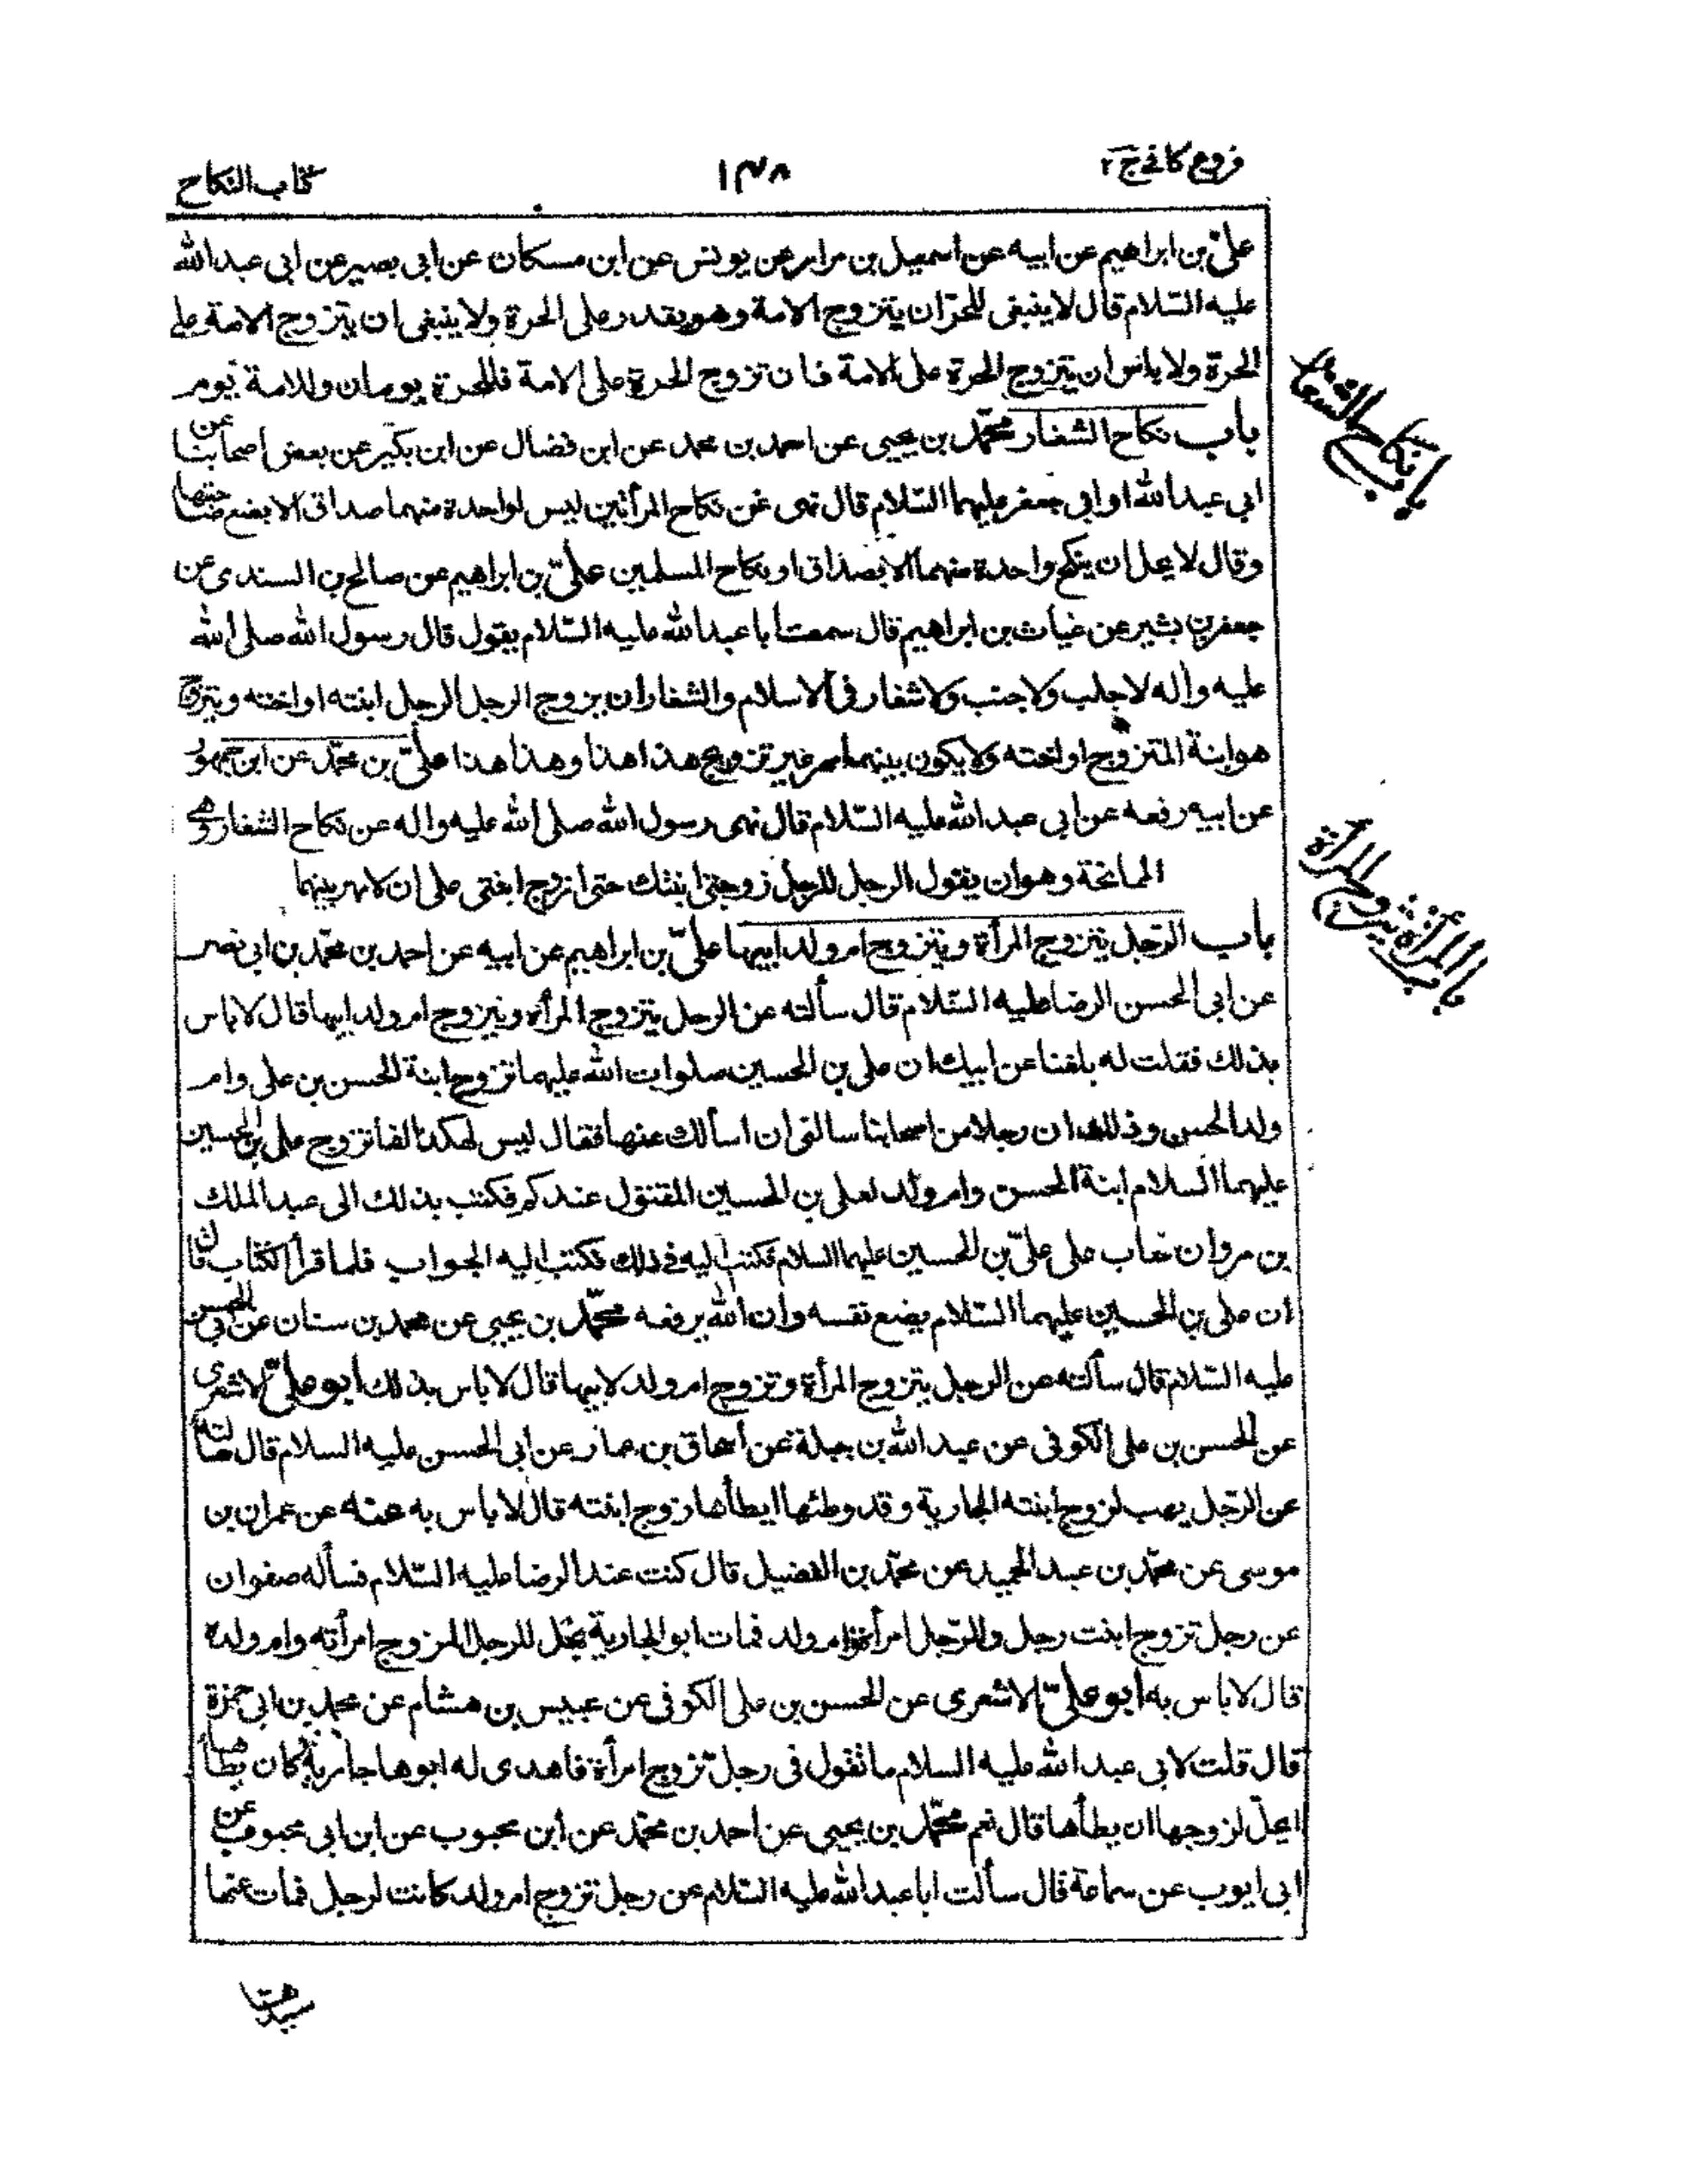 فروع كافي ج ٢
١٣٨
كتاب النكاح
علىّ بن ابراهيم عن ابيه عن اسمعيل بن مرار عن يونس عن ابن مسكان عن ابى بصير عن ابى عبد الله
عليه السّلام قال لا ينبغى للحرّ ان يتزوج الامة وهو يقدر على الحرة ولا ينبغى ان يتزوج الامة على
الحرّة ولا باس ان يتزوج الحرة على الامة فان تزوج الحرة على الامة فللحرة يومان وللامة يوم
باب نكاح الشغار محمّد بن يحيى عن احمد بن محمد عن ابن فضال عن ابن بكير عن بعض اصحابنا عن
ابى عبد الله او ابى جعفر عليهما السّلام قال نهى عن نكاح المرأتين ليس لواحدة منهما صداق الا بضع صاحبتها
وقال لا يحل ان ينكح واحدة منهما الا بصداق او نكاح المسلمين علىّ بن ابراهيم عن صالح بن السندى عن
جعفر بن بشير عن غياث بن ابراهيم قال سمعت أبا عبد الله عليه السّلام يقول قال رسول الله صلى الله
عليه وآله لا جلب ولا جنب ولا شغار فى الاسلام والشغار ان يزوج الرجل الرجل ابنته او اخته ويتزوج
هو ابنة المتزوج او اخته ولا يكون بينهما مهر غير تزويج هذا هذا وهذا هذا علىّ بن محمّد عن ابن جمهور
عن ابيه رفعه عن ابى عبد الله عليه السّلام قال نهى رسول الله صلى الله عليه واله عن نكاح الشغار وهى
الممانحة وهو ان يقول الرجل للرجل زوجنى ابنتك حتى ازوج ابنتى على ان لا مهر بينهما
باب الرّجل يتزوج المرأة ويتزوج ام ولد ابيها علىّ بن ابراهيم عن ابيه عن احمد بن محمّد بن ابى نصر
عن ابى الحسن الرضا عليه السّلام قال سألته عن الرجل يتزوج المرأة ويتزوج ام ولد ابيها قال لا باس
بذلك فقلت له بلغنا عن ابيك ان على بن الحسين صلوات الله عليهما تزوج ابنة الحسن بن على وام
ولد الحسن وذلك ان رجلا من اصحابنا سالنى ان اسالك عنها فقال ليس هكذا انما تزوج على بن الحسين
عليهما السلام ابنة الحسن وام ولد لعلى بن الحسين المقتول عندكم فكتب بذلك الى عبد الملك
بن مروان فعاب على علىّ بن الحسين عليهما السلام فكتب اليه فى ذلك فكتب اليه الجواب فلما قرأ الكتاب قال
ان على بن الحسين عليهما السّلام يضع نفسه وان الله يرفعه محمّد بن يحيى عن محمد بن سنان عن ابى الحسن
عليه السّلام قال سألته عن الرجل يتزوج المرأة وتزوج ام ولد لابيها قال لا باس بذلك ابو علىّ الاشعرى
عن الحسن بن على الكوفى عن عبد الله بن جبلة عن اسحاق بن عمار عن ابى الحسن عليه السلام قال سألته
عن الرّجل يهب لزوج ابنته الجارية وقد وطئها ايطأها زوج ابنته قال لا باس به عنه عن عمران بن
موسى عن محمّد بن عبد الحميد عن محمّد بن الفضيل قال كنت عند الرضا عليه السّلام فسأله صفوان
عن رجل تزوج ابنت رجل وللرّجل امرأة وام ولد فمات ابو الجارية يحل للرجل المزوج امرأته وام ولده
قال لا باس به أبو علىّ الاشعرى عن الحسن بن على الكوفى عن عبيس بن هشام عن محمد بن ابى حمزة
قال قلت لابى عبد الله عليه السلام ما تقول فى رجل تزوج امرأة فاهدى له ابوها جارية كان يطأها
ايحلّ لزوجها ان يطأها قال نعم محمّد بن يحيى عن احمد بن محمّد عن ابن محبوب عن ابن ابى محبوب عن
ابى ايوب عن سماعة قال سألت ابا عبد الله عليه السّلام عن رجل تزوج ام ولد كانت لرجل فمات عنها
باب نكاح الشغار
سيدها